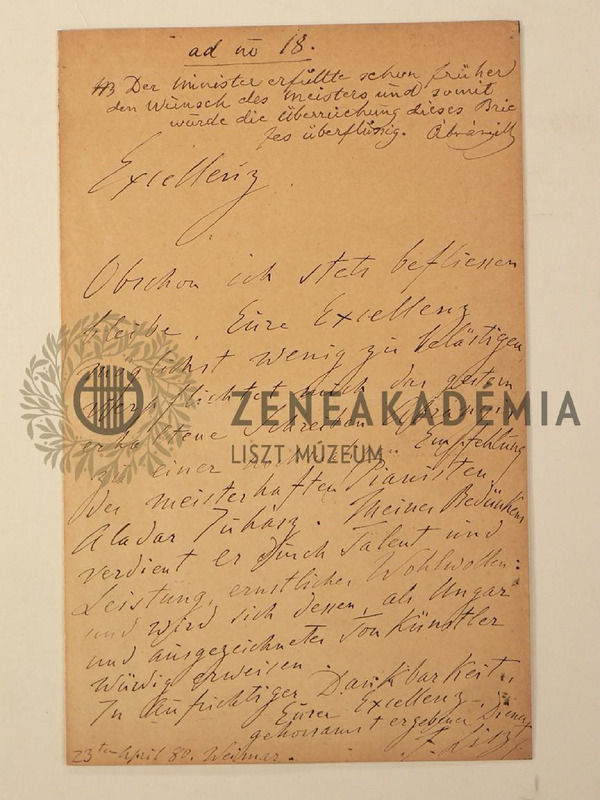 ad no 18.
NB Der Minister erfüllte schon früher
den Wunsch des Meisters und somit
wurde die Überreichung dieses Brie
fes überflüssig. Ábrányi
Excellenz
Obschon ich stets beflissen
bleibe, Eure Excellenz
möglichst wenig zu belästigen
verpflichtet mich das gestern
erhaltene Schreiben Ábrányis
zu einer Empfehlung
des meisterhaften Pianisten,
Aladar Juhász. Meines Bedünkens
verdient er durch Talent und
Leistung, ernstliches Wohlwollen:
und wird sich dessen, als Ungar
und ausgezeichneter Tonkünstler
würdig erweisen.
In aufrichtiger Dankbarkeit,
Eurer Excellenz
gehorsamst ergebener Diener
F. Liszt
23ten April 80. Weimar.
ZENEAKADÉMIA
LISZT MÚZEUM